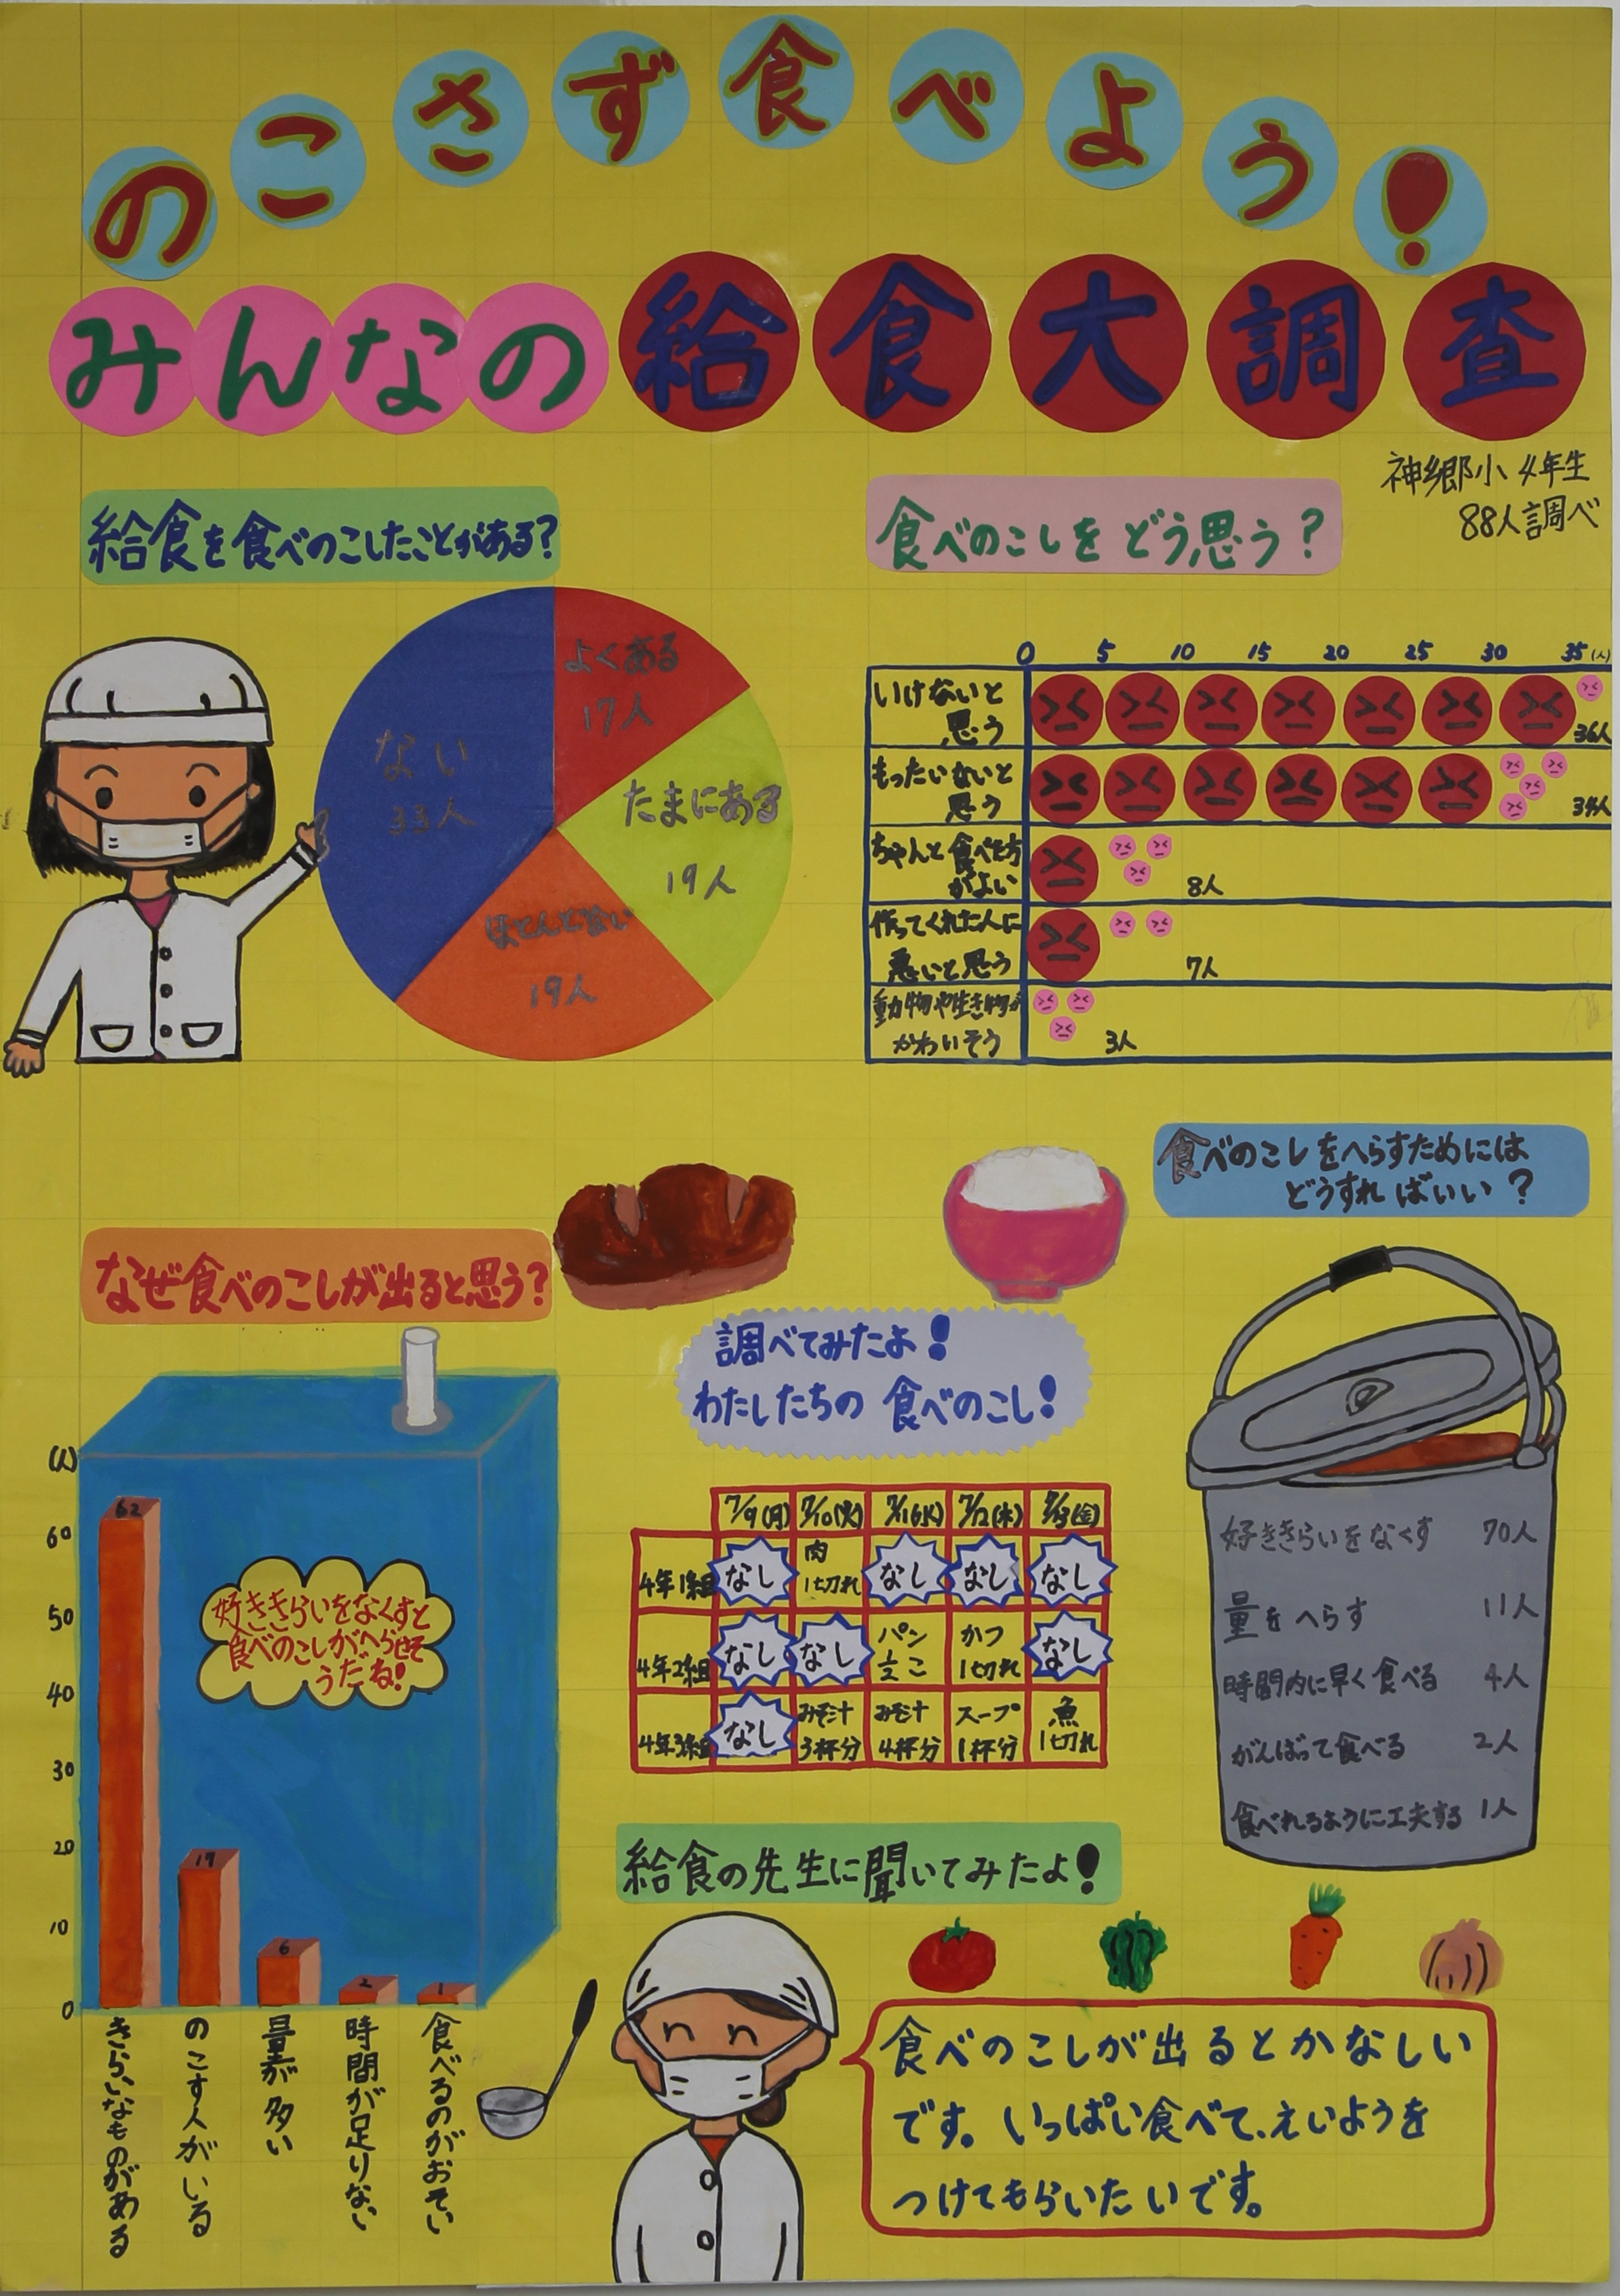 のこさず食べよう!
みんなの給食大調査
神郷小 4年生
88人調べ
給食を食べのこしたことがある?
よくある
17人
たまにある
19人
ほとんどない
19人
ない
33人
食べのこしをどう思う?
0 5 10 15 20 25 30 35 (人)
いけないと
思う
36人
もったいないと
思う
34人
ちゃんと食べた方
がよい
8人
作ってくれた人に
悪いと思う
7人
動物や生き物が
かわいそう
3人
なぜ食べのこしが出ると思う?
(人)
60
50
40
30
20
10
0
62
19
6
2
1
好ききらいをなくすと
食べのこしがへらせそ
うだね!
きらいなものがある
のこす人がいる
量が多い
時間が足りない
食べるのがおそい
調べてみたよ!
わたしたちの 食べのこし!
7/9(月) 7/10(火) 7/11(水) 7/12(木) 7/13(金)
4年1組 なし 肉1切れ なし なし なし
4年2組 なし なし パン1/2こ かつ1切れ なし
4年3組 なし みそ汁3杯分 みそ汁4杯分 スープ1杯分 魚1切れ
食べのこしをへらすためには
どうすればいい?
好ききらいをなくす 70人
量をへらす 11人
時間内に早く食べる 4人
がんばって食べる 2人
食べれるように工夫する 1人
給食の先生に聞いてみたよ!
食べのこしが出るとかなしい
です。いっぱい食べて、えいようを
つけてもらいたいです。